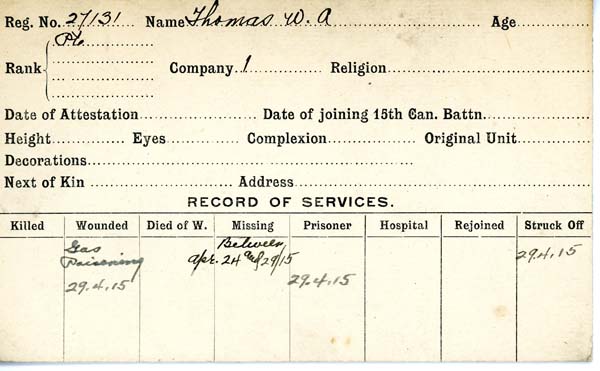 Reg. No. 27131 Name Thomas W. A Age
Pte
Rank Company 1 Religion
Date of Attestation Date of joining 15th Can. Battn.
Height Eyes Complexion Original Unit
Decorations
Next of Kin Address
RECORD OF SERVICES.
Killed Wounded Died of W. Missing Prisoner Hospital Rejoined Struck Off
Gas Between
Poisoning Apr. 24 and 29/15 29.4.15
29.4.15 29.4.15